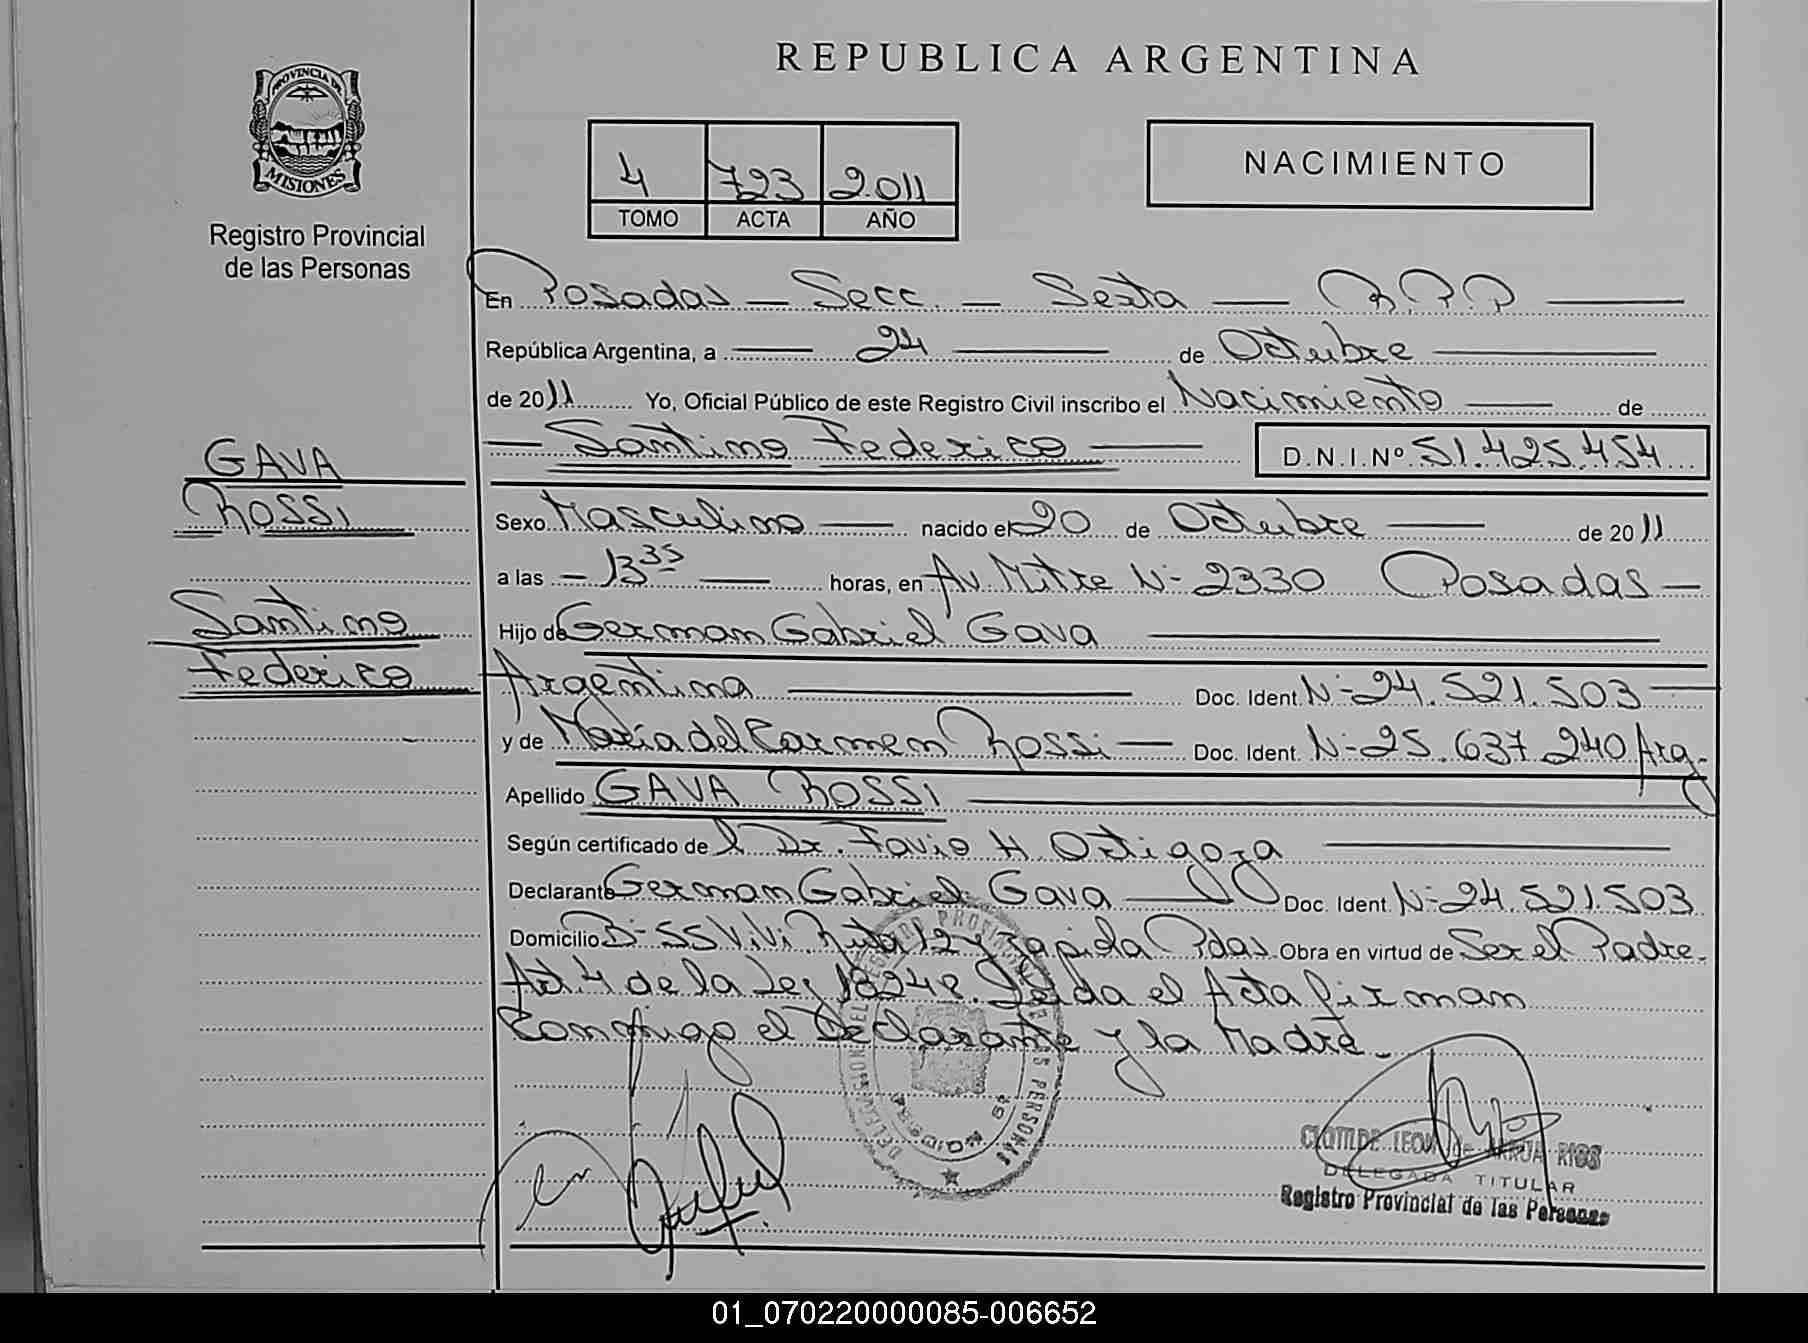 REPUBLICA ARGENTINA
PROVINCIA DE
MISIONES
Registro Provincial
de las Personas
4 723 2.011
TOMO ACTA AÑO
NACIMIENTO
En Posadas — Secc. — Sexta — R.P.P —
República Argentina, a — 24 — de Octubre —
de 2011 Yo, Oficial Público de este Registro Civil inscribo el Nacimiento — de
— Santino Federico — D.N.I.Nº 51.425.454
GAVA
ROSSI
Santino
Federico
Sexo Masculino — nacido el 20 de Octubre — de 2011
a las — 13 35 — horas, en Av. Mitre N- 2330 Posadas —
Hijo de German Gabriel Gava —
Argentina — Doc. Ident. N- 24.521.503 —
y de María del Carmen Rossi — Doc. Ident. N- 25.637.240 Arg.
Apellido GAVA ROSSI —
Según certificado del Dr. Favio H Ortigoza —
Declarante German Gabriel Gava — Doc. Ident. N- 24.521.503
Domicilio B- SS ViVi Ruta 12 y Zapiola Pdas. Obra en virtud de Ser el Padre.
Art. 4 de la Ley 18248. Leida el Acta firman
Conmigo el Declarante y la Madre.
DELEGACION PROVINCIAL PERSONAS
CLOTILDE LEON de ARRUA RIOS
DELEGADA TITULAR
Registro Provincial de las Personas
01_070220000085-006652